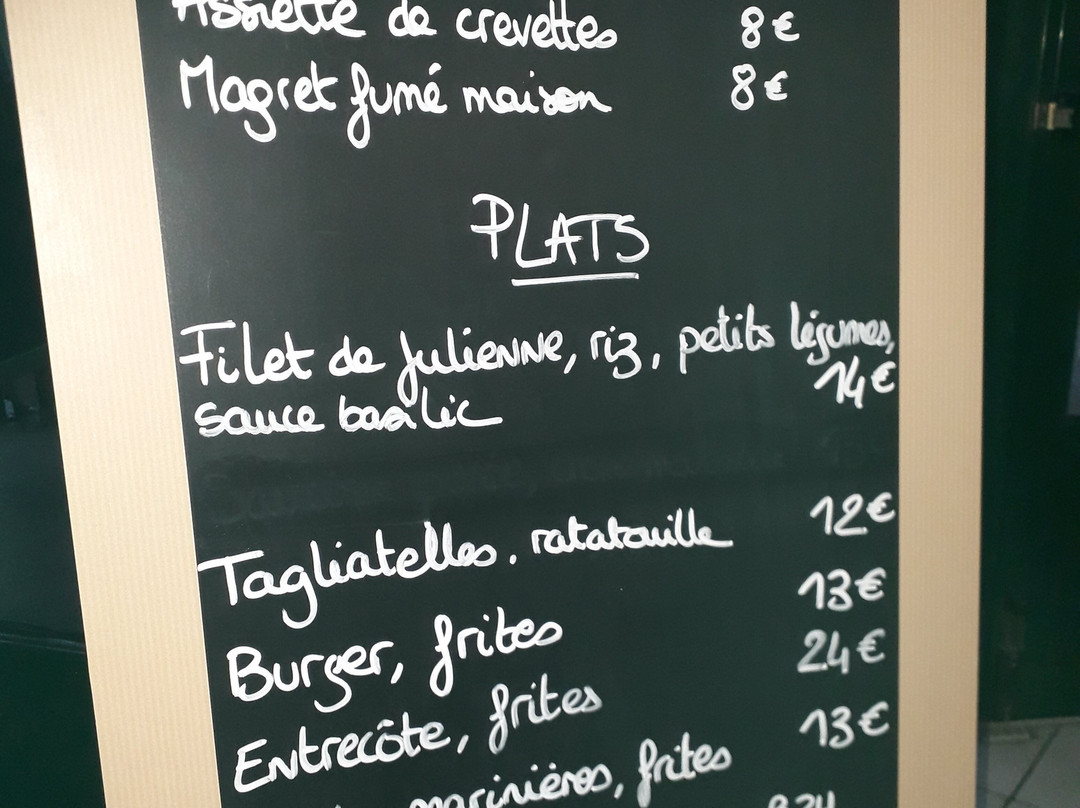 Assiette de crevettes 8€
Magret fumé maison 8€
PLATS
Filet de Julienne, riz, petits légumes,
sauce basilic 14€
Tagliatelles. ratatouille 12€
Burger, frites 13€
Entrecôte, frites 24€
marinières, frites 13€